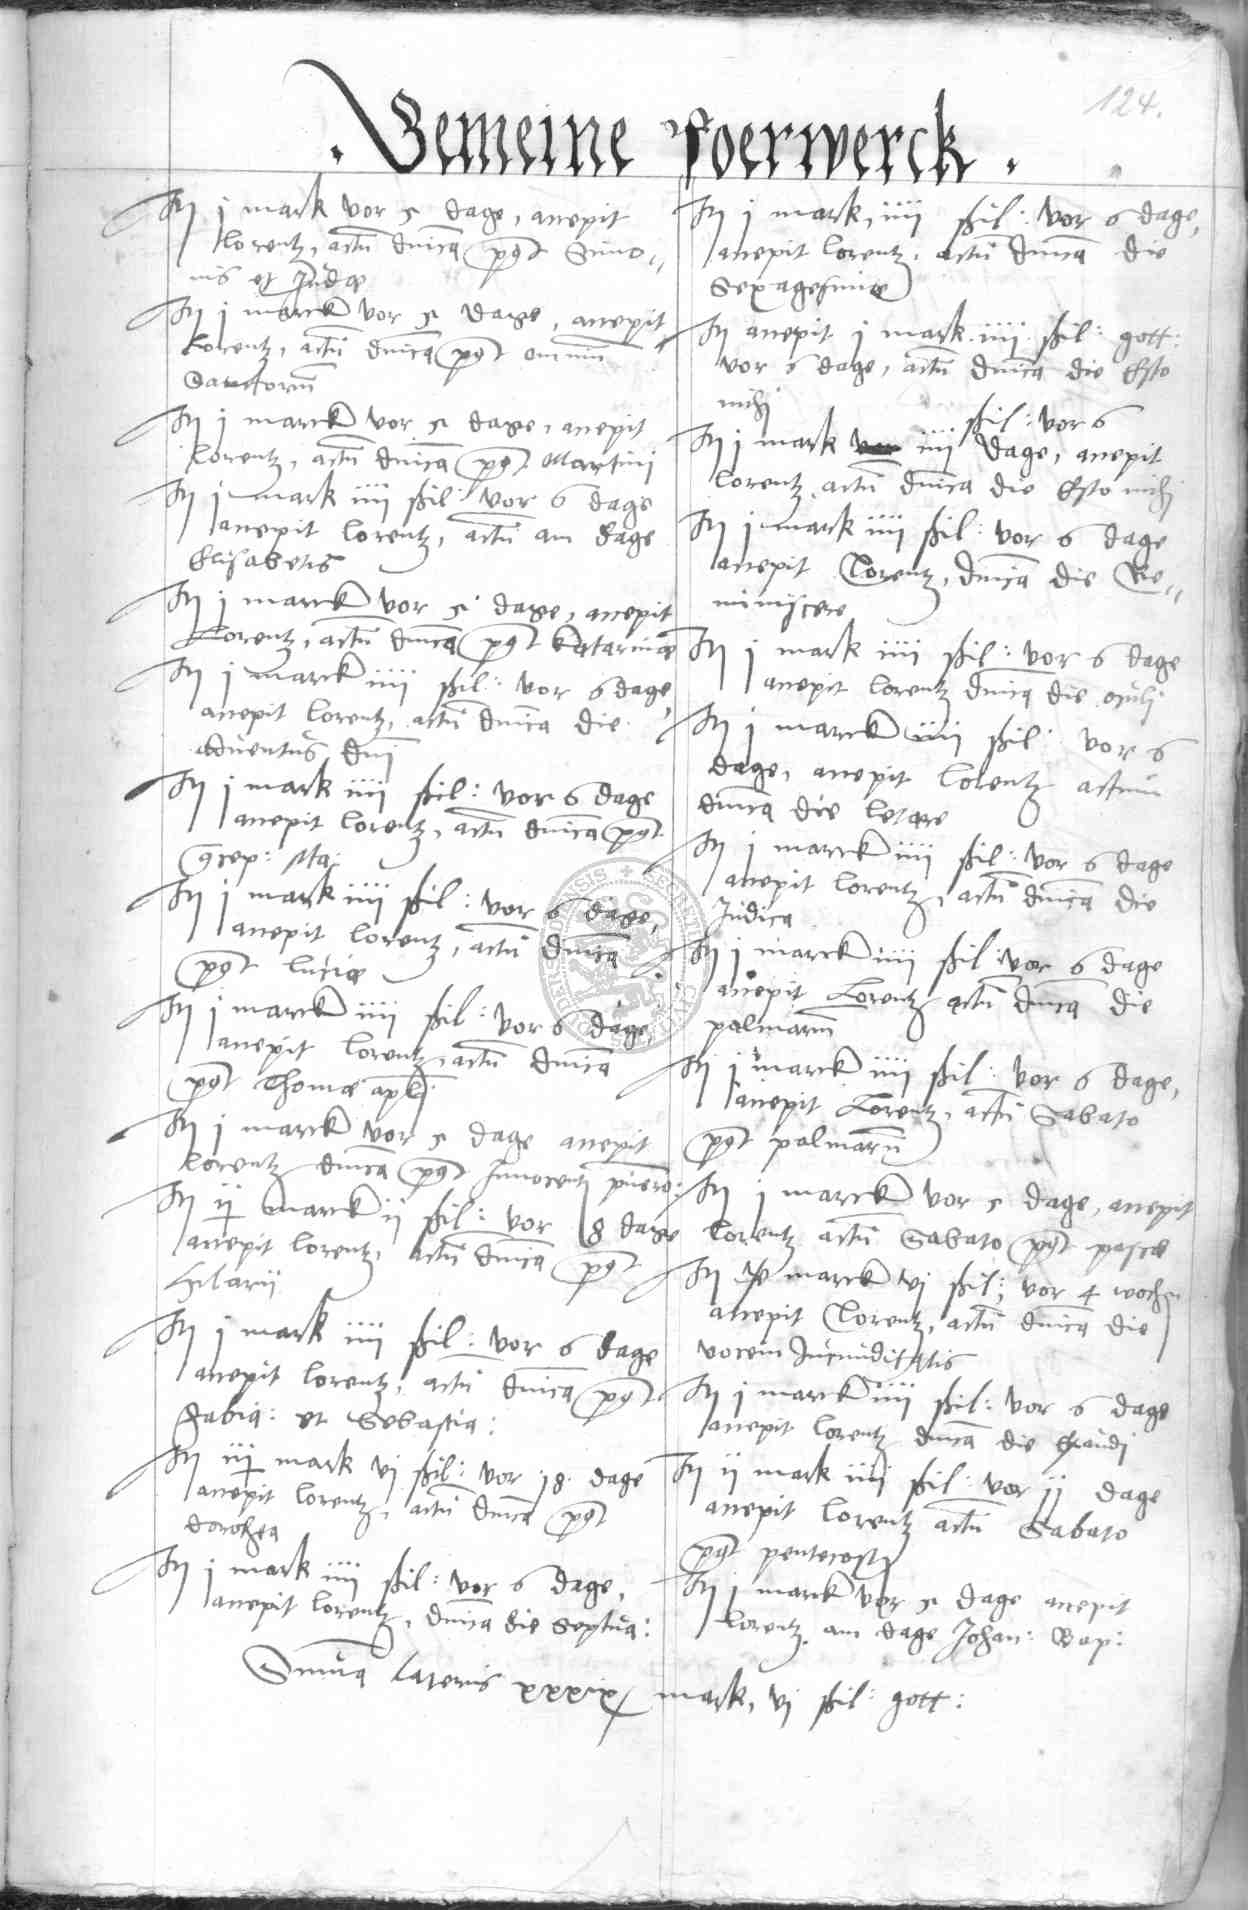 124.
. Gemeine Foerwerck .
Itẽ j mark vor 5 dage, accepit
Lorentz, actũ dnica post Simo„
nis et Judæ
Itẽ j marck vor 5 dage, accepit
Lorentz, actũ dnica post omniũ
Sanctorũ
Itẽ j marck vor 5 dage, accepit
Lorentz, actũ dnica post Martini
Itẽ j mark iiij ßil: vor 6 dage
accepit Lorentz, actũ am dage
Elisabetis
Itẽ j marck vor 5 dage, accepit
Lorentz, actũ dnica post Katarinæ
Itẽ j marck iiij ßil: vor 6 dage,
accepit Lorentz, actũ dnica die
Aduentus dni
Itẽ j mark iiij ßil: vor 6 dage
accepit Lorentz, actũ dnica post
cõcep: Ma:
Itẽ j mark iiij ßil: vor 6 dage,
accepit Lorentz, actũ dnica
post Luciæ
Itẽ j marck iiij ßil: vor 6 dage,
accepit Lorentz, actũ dnica
post Thomæ apli
Itẽ j marck vor 5 dage accepit
Lorentz dnica post Innocentũ puero:
Itẽ ij marck ij ßil: vor 8 dage
accepit Lorentz, actũ dnica post
Hilarii
Itẽ j mark iiij ßil: vor 6 dage
accepit Lorentz, actũ dnica post
Fabia: et Sebastia:
Itẽ iij mark vj ßil: vor 18 dage
accepit Lorentz, actũ dnica post
dorothea
Itẽ j mark iiij ßil: vor 6 dage,
accepit Lorentz, dnica die Septua:
Itẽ j mark, iiij ßil: vor 6 dage,
accepit Lorentz, actũ dnica die
Sexagesimæ
Itẽ accepit j mark iiij ßil: gott:
vor 6 dage, actũ dnica die Esto
michi
ßil: vor 6
Itẽ j mark vor iiij dage, accepit
Lorentz, actũ dnica die Esto michi
Itẽ j mark iiij ßil: vor 6 dage
accepit Lorentz, dnica die Re„
miniscere
Itẽ j mark iiij ßil: vor 6 dage
accepit Lorentz dnica die oculj
Itẽ j marck iiij ßil: vor 6
dage, accepit Lorentz actum
dnica die letare
Itẽ j marck iiij ßil: vor 6 dage
accepit Lorentz, actũ dnica die
Judica
Itẽ j marck iiij ßil vor 6 dage
accepit Lorentz actũ dnica die
palmarũ
Itẽ j marck iiij ßil: vor 6 dage,
accepit Lorentz, actũ Sabato
post palmarũ
Itẽ j marck vor 5 dage, accepit
Lorentz actũ Sabato post pascæ
Itẽ marck vj ßil: vor 4 wochen
accepit Lorentz, actũ dnica die
vocem Jucunditatis
Itẽ j marck iiij ßil: vor 6 dage
accepit Lorentz dnica die Exaudi
Itẽ ij mark iiij ßil: vor jj dage
accepit Lorentz actũ Sabato
post pentecost
Itẽ j marck vor 5 dage accepit
Lorentz am dage Johan: Bap:
Suma Lateris xxxix mark, vj ßil: gott: